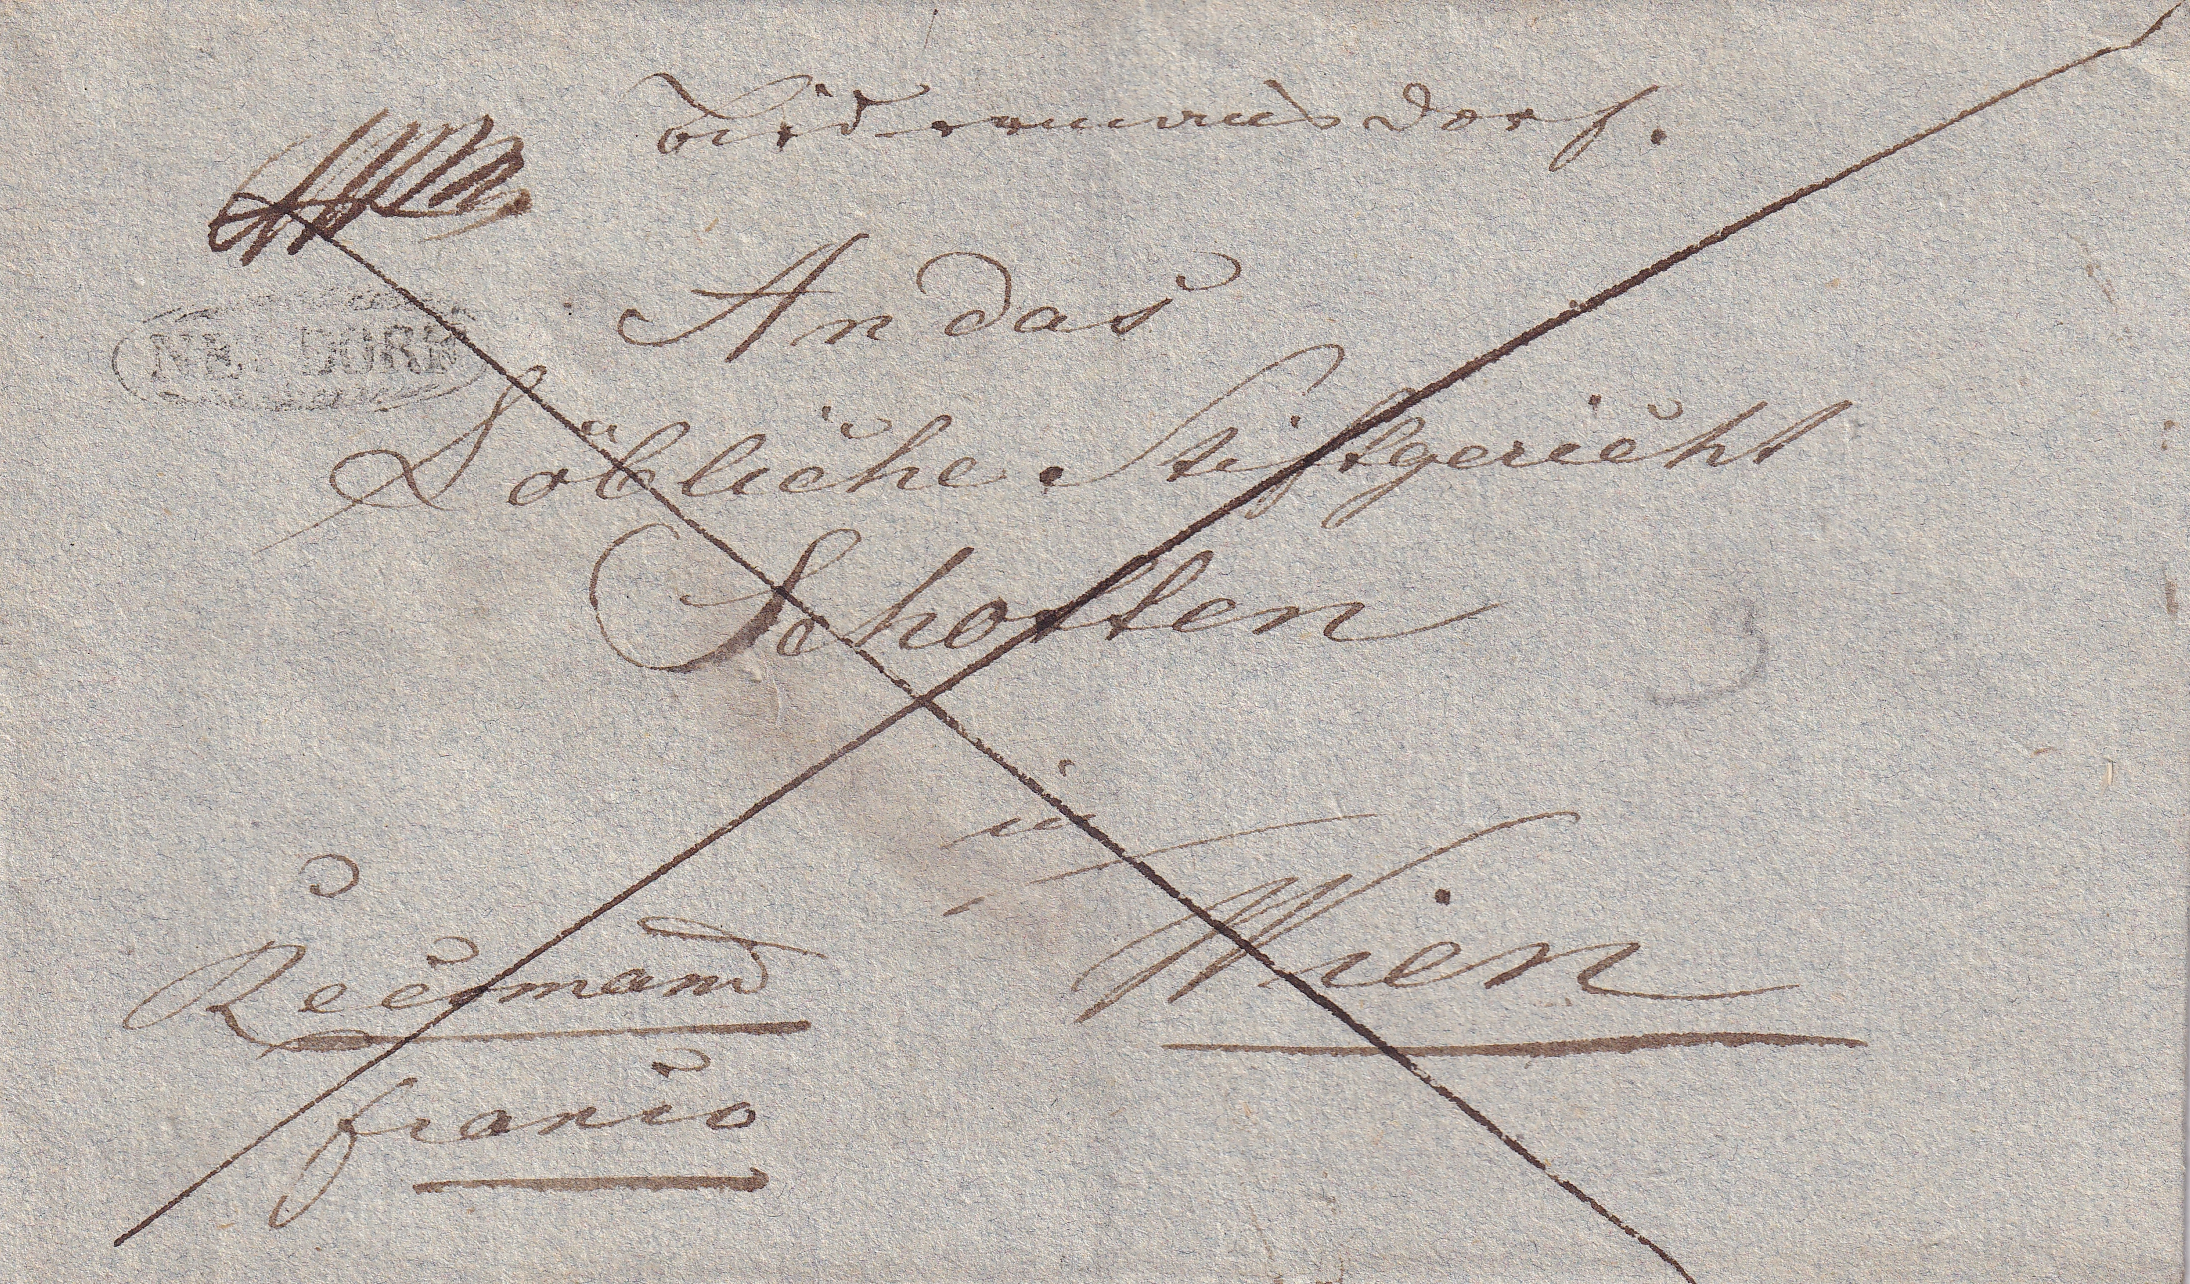 Bidermansdorf.
NEUDORF
An das
Löbliche Stiftgericht
Schotten
in
Wien
Recomand
franco